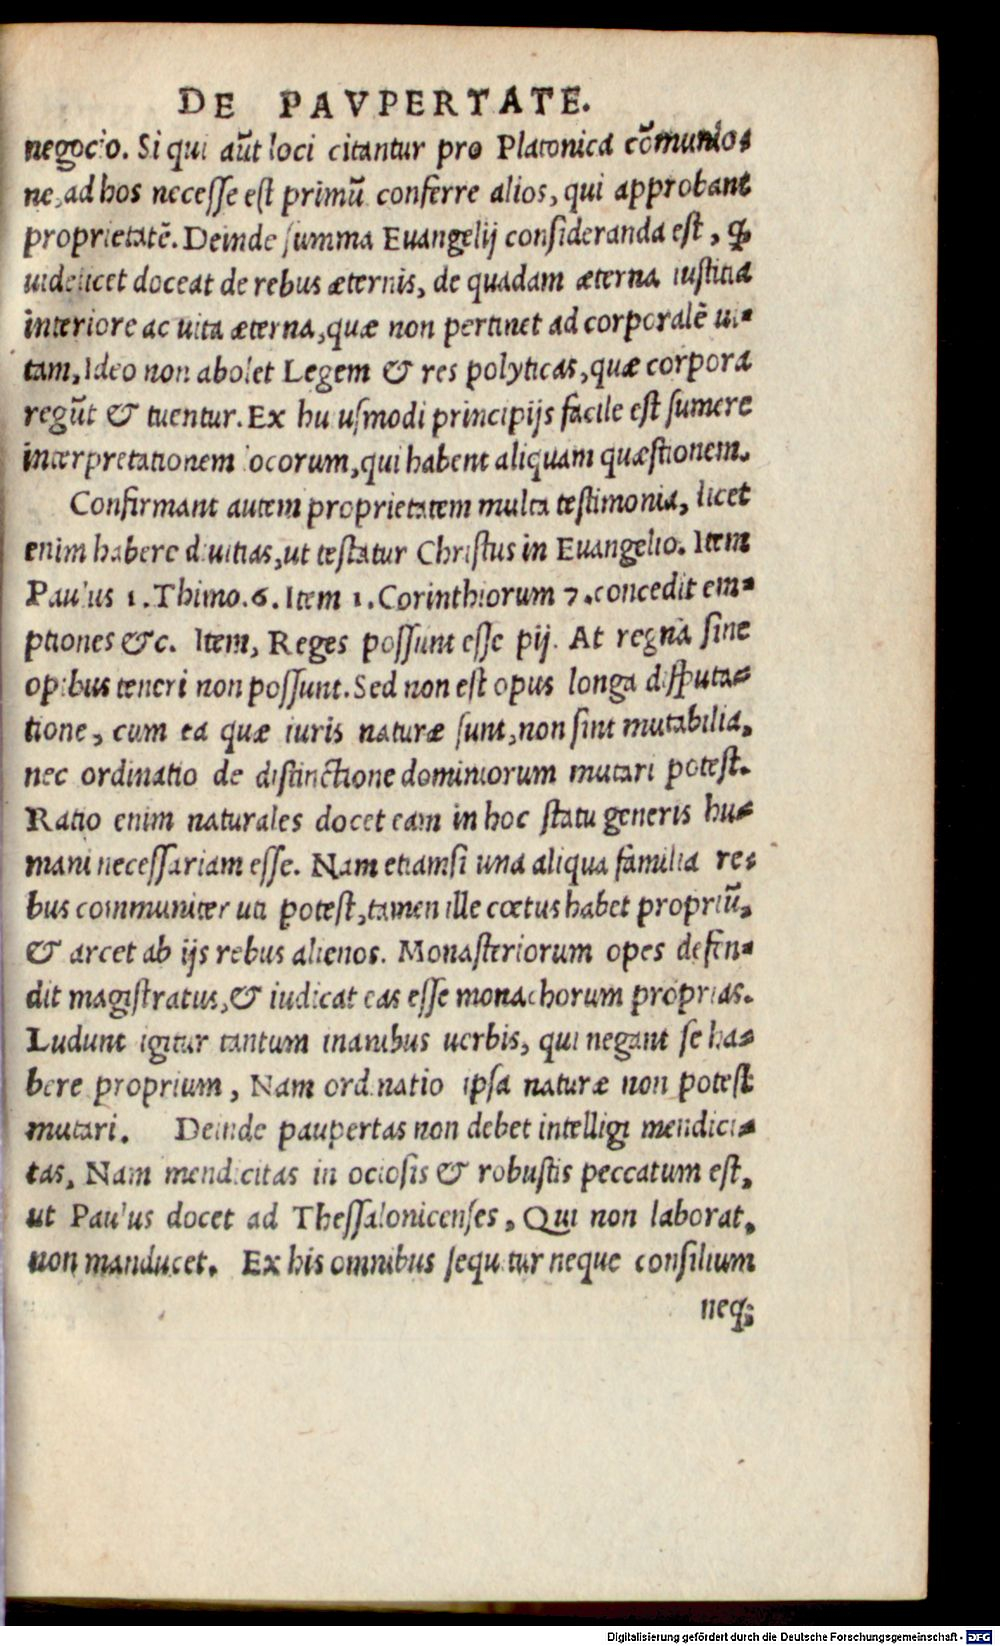 DE PAVPERTATE.
negocio. Si qui aūt loci citantur pro Platonica cōmunio-
ne, ad hos necesse est primū conferre alios, qui approbant
proprietatē. Deinde summa Euangelij consideranda est, ꝙ
uidelicet doceat de rebus æternis, de quadam æterna iustitia
interiore ac uita æterna, quæ non pertinet ad corporalē ui-
tam, Ideo non abolet Legem & res polyticas, quæ corpora
regūt & tuentur. Ex huiusmodi principijs facile est sumere
interpretationem locorum, qui habent aliquam quæstionem.
Confirmant autem proprietatem multa testimonia, licet
enim habere diuitias, ut testatur Christus in Euangelio. Item
Paulus 1. Thimo. 6. Item 1. Corinthiorum 7. concedit em-
ptiones &c. Item, Reges possunt esse pij. At regna sine
opibus teneri non possunt. Sed non est opus longa disputa-
tione, cum ea quæ iuris naturæ sunt, non sint mutabilia,
nec ordinatio de distinctione dominiorum mutari potest.
Ratio enim naturales docet eam in hoc statu generis hu-
mani necessariam esse. Nam etiamsi una aliqua familia re-
bus communiter uti potest, tamen ille cœtus habet propriū,
& arcet ab ijs rebus alienos. Monasteriorum opes defen-
dit magistratus, & iudicat eas esse monachorum proprias.
Ludunt igitur tantum inanibus uerbis, qui negant se ha-
bere proprium, Nam ordinatio ipsa naturæ non potest
mutari. Deinde paupertas non debet intelligi mendici-
tas, Nam mendicitas in ociosis & robustis peccatum est,
ut Paulus docet ad Thessalonicenses, Qui non laborat,
non manducet. Ex his omnibus sequitur neque consilium
neq;
Digitalisierung gefördert durch die Deutsche Forschungsgemeinschaft - DFG